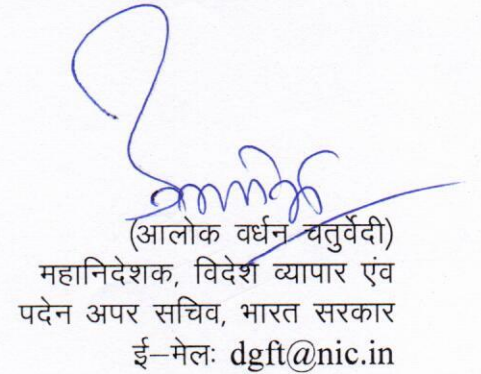 (आलोक वर्धन चतुर्वेदी)
महानिदेशक, विदेश व्यापार एंव
पदेन अपर सचिव, भारत सरकार
ई–मेलः dgft@nic.in